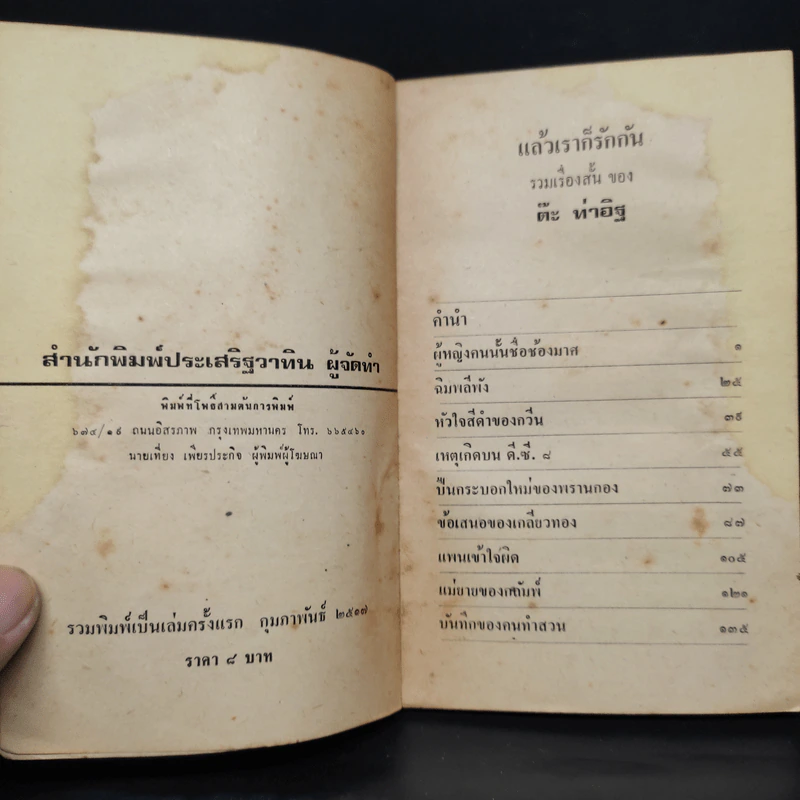 สำนักพิมพ์ประเสริฐวาทิน ผู้จัดทำ
พิมพ์ที่โพธิ์สามต้นการพิมพ์
๖๗๔/๑๙ ถนนอิสรภาพ กรุงเทพมหานคร โทร. ๖๖๕๔๖๐
นายเที่ยง เพียรประกิจ ผู้พิมพ์ผู้โฆษณา
รวมพิมพ์เป็นเล่มครั้งแรก กุมภาพันธ์ ๒๕๑๗
ราคา ๘ บาท
แล้วเราก็รักกัน
รวมเรื่องสั้น ของ
ต๊ะ ท่าอิฐ
คำนำ
ผู้หญิงคนนั้นชื่อช้องมาศ ๑
ฉิมพลีพัง ๒๕
หัวใจสีดำของกวิ้น ๓๙
เหตุเกิดบน ดี.ซี. ๘ ๕๕
ปืนกระบอกใหม่ของพรานกอง ๗๓
ข้อเสนอของเกลียวทอง ๘๗
แพนเข้าใจผิด ๑๐๕
แม่ยายของ ๑๒๑
บันทึกของคนทำสวน ๑๓๕